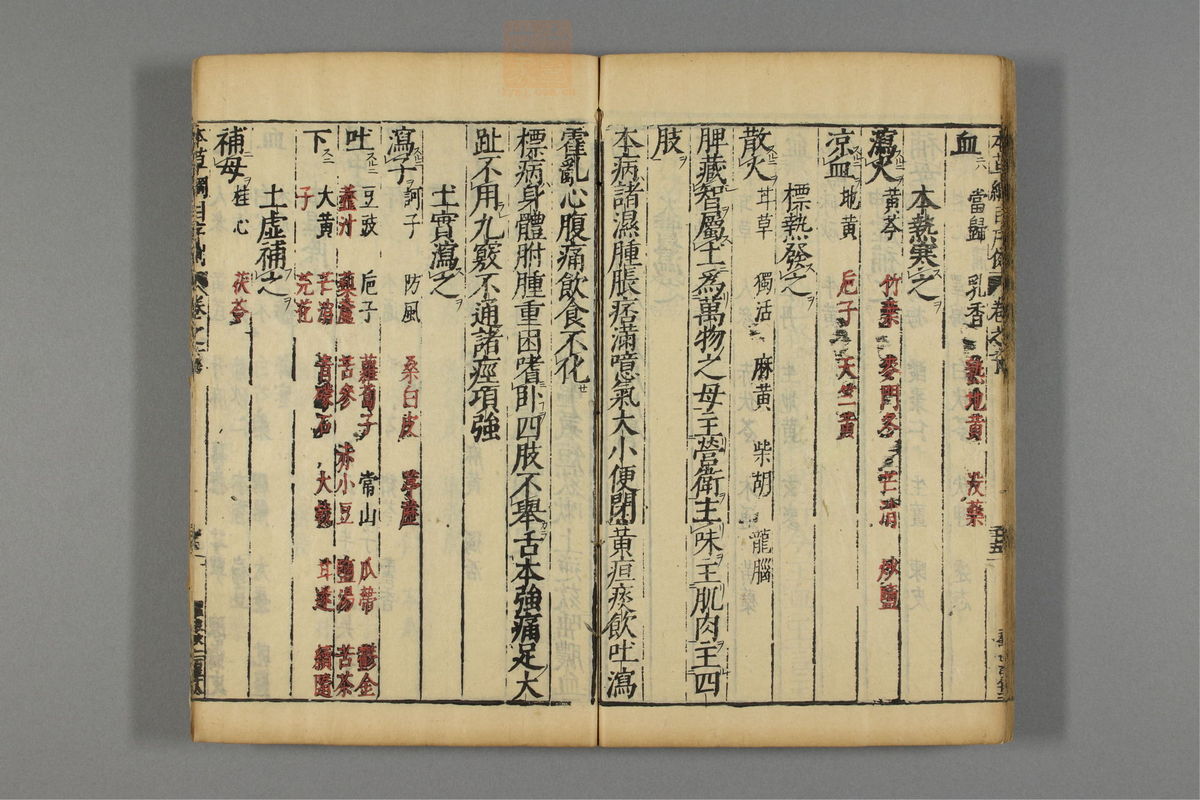 血 當歸 乳香 熟地黃 沒藥
本熱寒之
瀉火 黃芩 竹葉 麥門冬 芒消 炒鹽
凉血 地黃 巵子 天竺黃
標熱發之
散火 甘草 獨活 麻黃 柴胡 龍腦
脾藏智屬土為萬物之母主營衛主味主肌肉主四
肢
本病諸濕腫脹痞滿噫氣大小便閉黃疸痰飲吐瀉
霍亂心腹痛飲食不化
標病身體胕腫重困嗜卧四肢不舉舌本強痛足大
趾不用九竅不通諸痙項強
土實瀉之
瀉子 訶子 防風 桑白皮 葶藶
吐 豆豉 巵子 蘿蔔子 常山 瓜蒂 鬱金
虀汁 藜蘆 苦參 赤小豆 鹽湯 苦茶
下 大黃 芒消 青礞石 大戟 甘遂 續隨
子 芫花
土虛補之
補母 桂心 茯苓